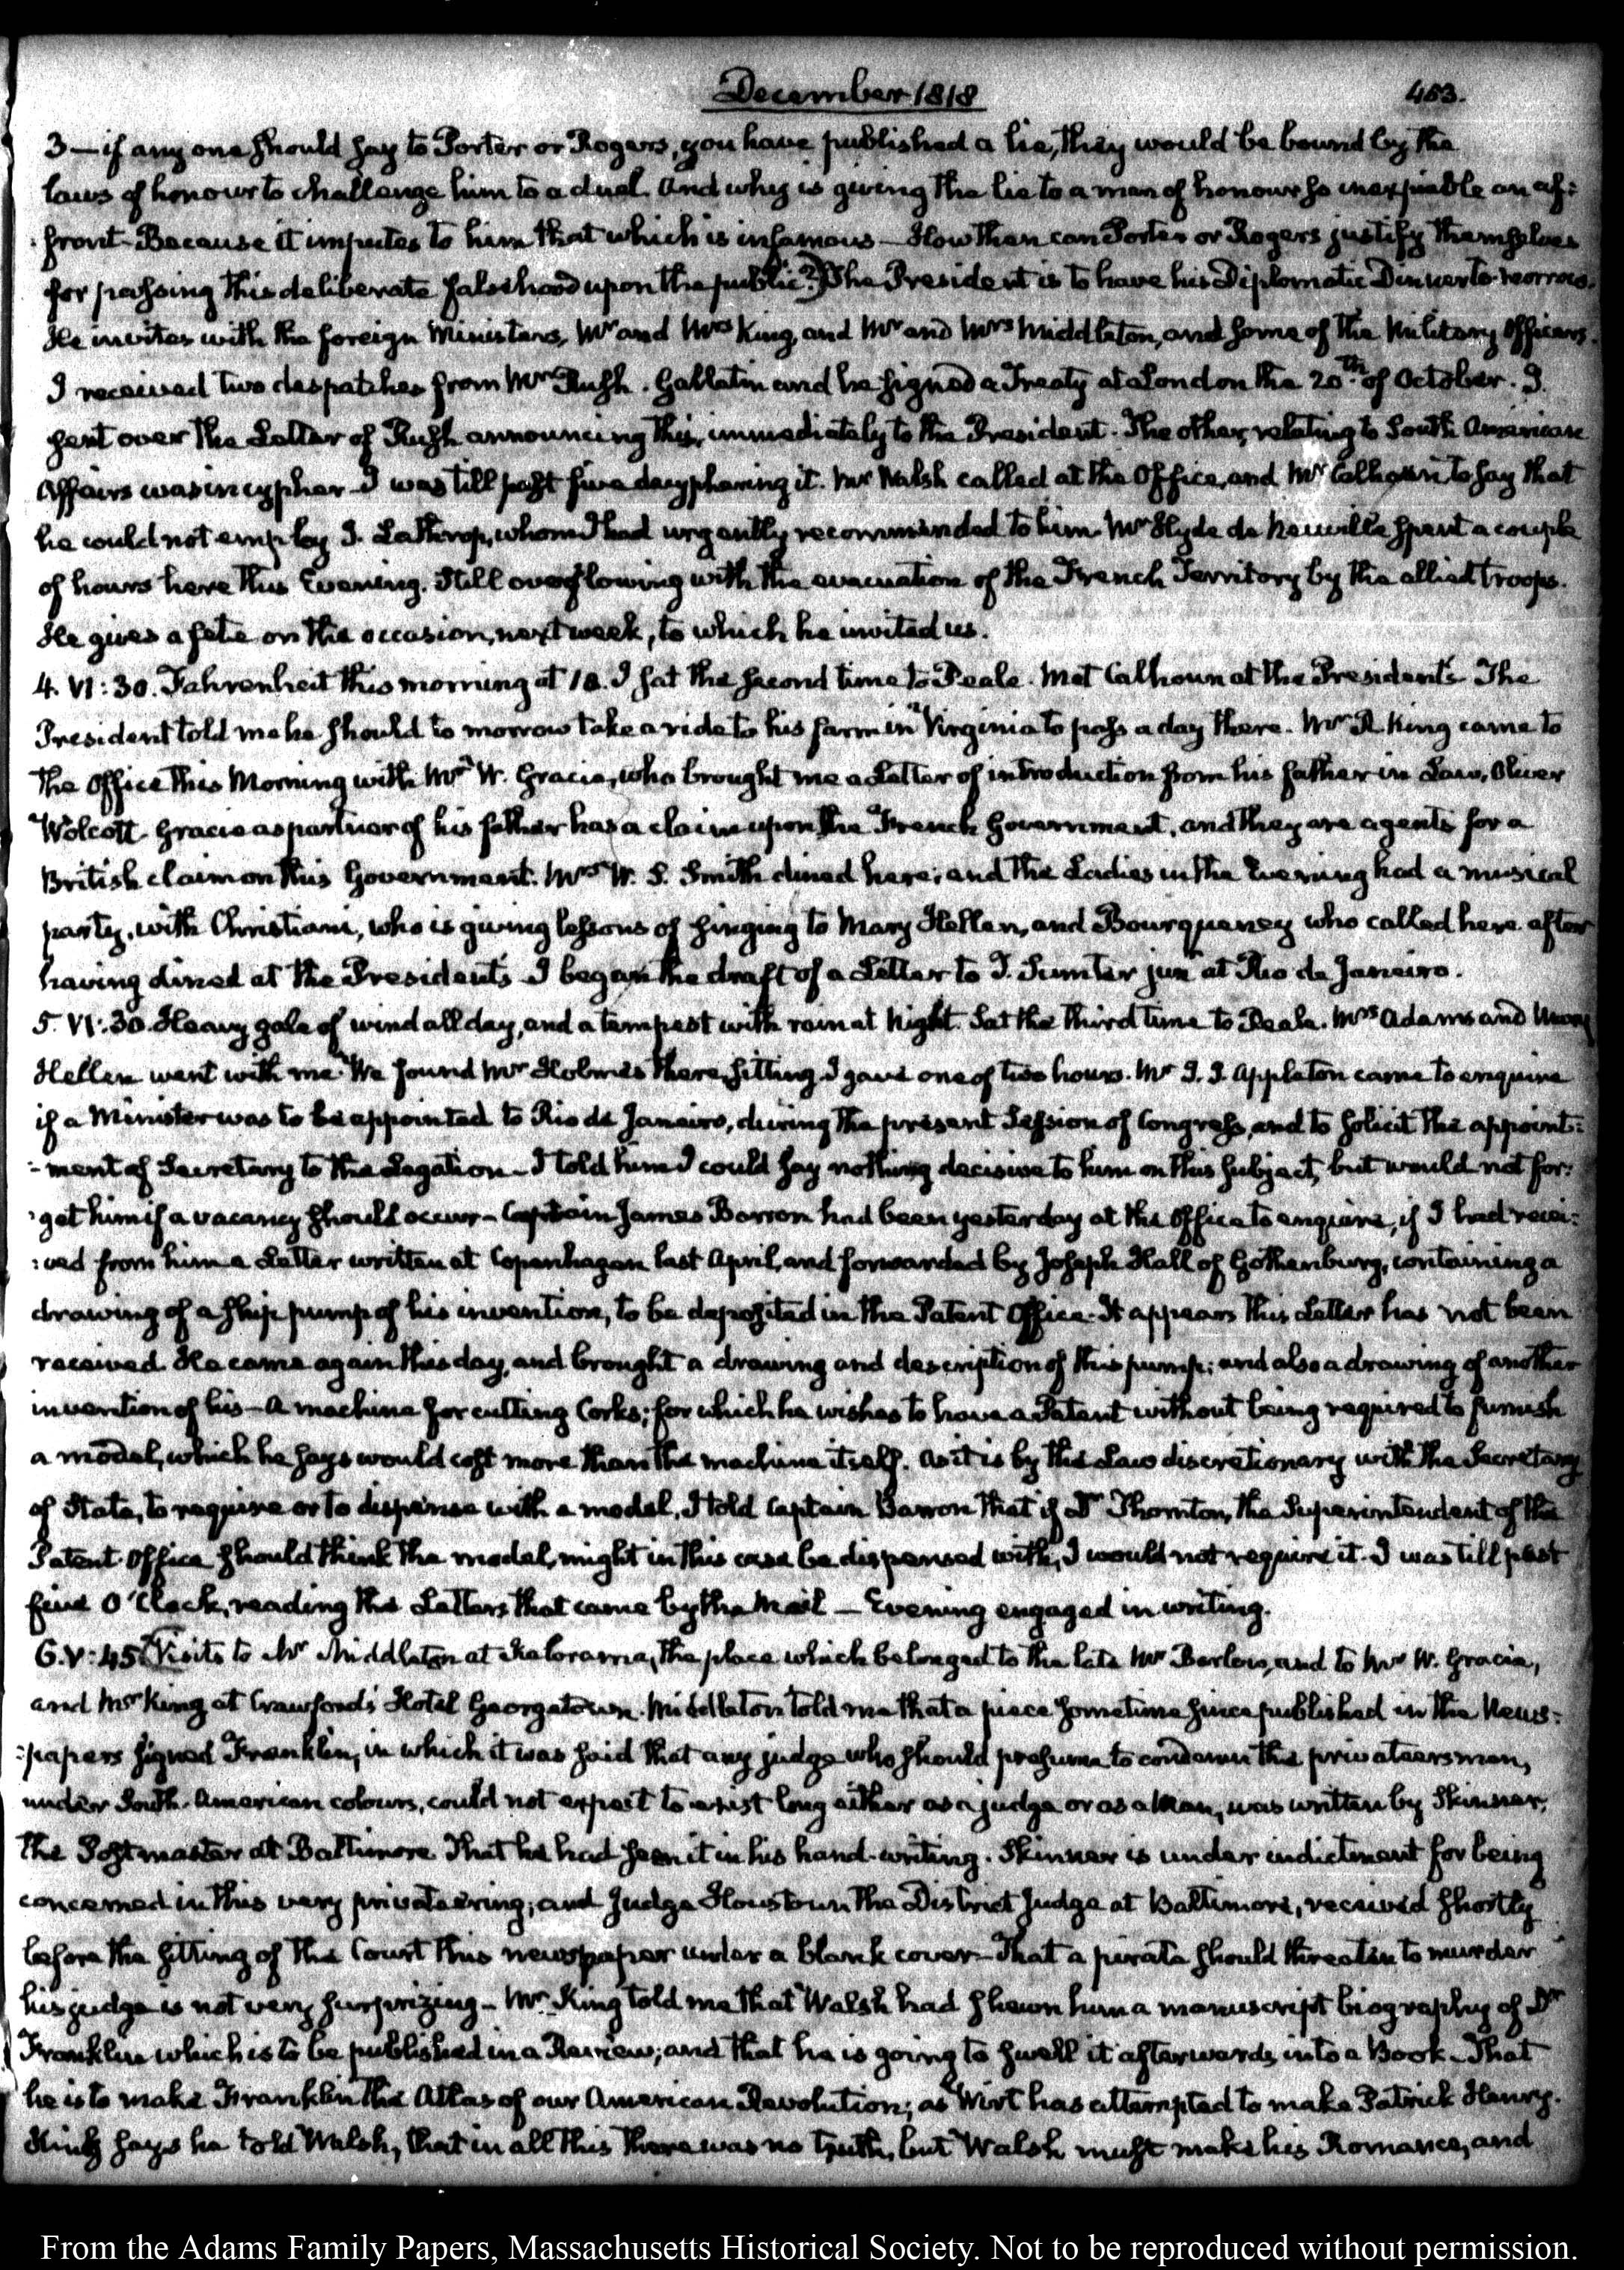 December 1818
453.
3 — if any one should say to Porter or Rogers, you have published a lie, they would be bound by the
laws of honour to challenge him to a duel. And why is giving the lie to a man of honour so inexpiable an af:
:front. Because it imputes to him that which is infamous — How then can Porter or Rogers justify themselves
for passing this deliberate falsehood upon the public?) The President is to have his Diplomatic Dinner to-morrow.
He invites with the foreign Ministers, Mr and Mrs King, and Mr and Mrs Middleton, and some of the Military Officers.
I received two despatches from Mr Rush. Gallatin and he signed a Treaty at London the 20th of October. I
sent over the Letter of Rush announcing this, immediately to the President. The other, relating to South American
Affairs was in cypher — I was till past five decyphering it. Mr Walsh called at the Office, and Mr Calhoun, to say that
he could not employ J. Lathrop, whom I had urgently recommended to him. Mr Hyde de Neuville spent a couple
of hours here this Evening. Still overflowing with the evacuation of the French Territory by the allied troops.
He gives a fete on the occasion, next week, to which he invited us.
4. VI:30. Fahrenheit this morning at 18. I sat the second time to Peale. Met Calhoun at the President's. The
President told me he should to morrow take a ride to his farm in Virginia to pass a day there. Mr R King came to
the Office this Morning with Mr W. Gracie, who brought me a Letter of introduction from his father in Law, Oliver
Wolcott. Gracie as partner of his father has a claim upon the French Government, and they are agents for a
British claim on this Government. Mrs W. S. Smith dined here; and the Ladies in the Evening had a musical
party, with Christiani, who is giving lessons of singing to Mary Hellen, and Bourqueney who called here after
having dined at the President's. I began the draft of a Letter to T. Sumter junr at Rio de Janeiro.
5. VI:30. Heavy gale of wind all day, and a tempest with rain at Night. Sat the third time to Peale. Mrs Adams and Mary
Hellen went with me. We found Mr Holmes there sitting. I gave one of two hours. Mr J. J. Appleton came to enquire
if a Minister was to be appointed to Rio de Janeiro, during the present Session of Congress, and to solicit the appoint:
:ment of Secretary to the Legation — I told him I could say nothing decisive to him on this subject, but would not for:
:get him if a vacancy should occur — Captain James Barron had been yesterday at the Office to enquire, if I had recei:
:ved from him a Letter written at Copenhagen last April, and forwarded by Joseph Hall of Gothenburg, containing a
drawing of a ship pump of his invention, to be deposited in the Patent Office. It appears this Letter has not been
received. He came again this day, and brought a drawing and description of this pump; and also a drawing of another
invention of his — A machine for cutting Corks; for which he wishes to have a Patent without being required to furnish
a model, which he says would cost more than the machine itself. As it is by the Law discretionary with the Secretary
of State, to require or to dispense with a model, I told Captain Barron that if Dr Thornton, the Superintendent of the
Patent Office should think the model, might in this case be dispensed with, I would not require it. I was till past
five O'Clock, reading the Letters that came by the Mail — Evening engaged in writing.
6. V:45. Visits to Mr Middleton at Kalorama, the place which belonged to the late Mr Barlow, and to Mr W. Gracie,
and Mr King at Crawford's Hotel Georgetown. Middleton told me that a piece sometime since published in the News:
:papers signed Franklin, in which it was said that any judge who should presume to condemn the privateersmen,
under South-American colours, could not expect to exist long either as a judge or as a Man, was written by Skinner,
the Postmaster at Baltimore. That he had seen it in his hand-writing. Skinner is under indictment for being
concerned in this very privateering; and Judge Houstoun the District Judge at Baltimore, received shortly
before the sitting of the Court this newspaper under a blank cover — That a pirate should threaten to murder
his judge is not very surprizing — Mr King told me that Walsh had shewn him a manuscript biography of Dr
Franklin which is to be published in a Review; and that he is going to swell it afterwards into a Book — That
he is to make Franklin the Atlas of our American Revolution; as Wirt has attempted to make Patrick Henry.
King says he told Walsh, that in all this there was no truth, but Walsh must make his Romance, and
From the Adams Family Papers, Massachusetts Historical Society. Not to be reproduced without permission.